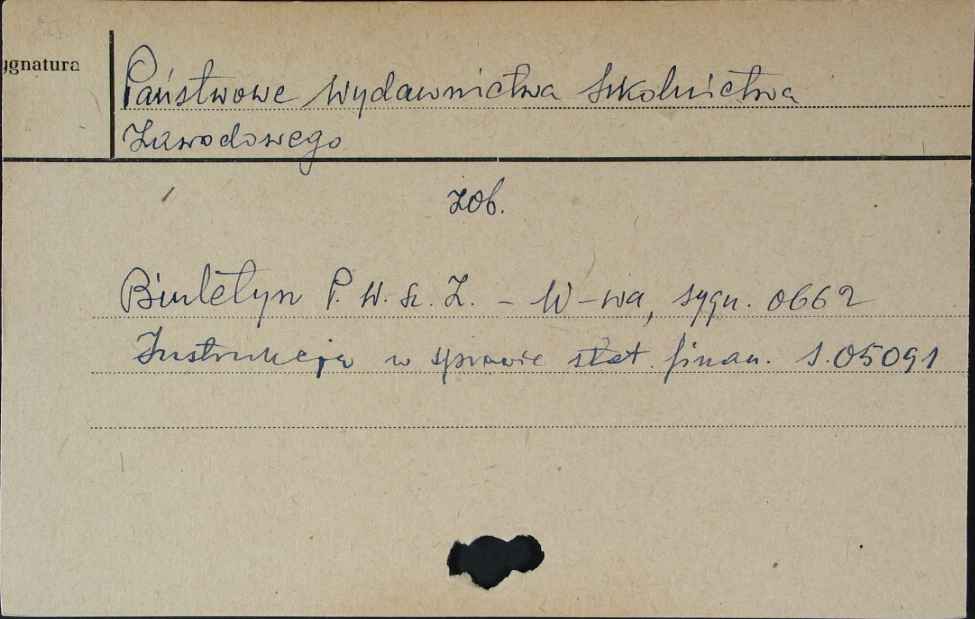 ygnatura
Państwowe Wydawnictwa Szkolnictwa
Zawodowego
zob.
Biuletyn P. W. Sz. Z. - W-wa, sygn. 0662
Instrukcja w sprawie stat. finan. s.05091